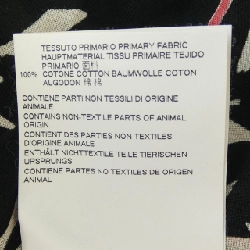 TESSUTO PRIMARIO PRIMARY FABRIC
HAUPTMATERIAL TISSU PRIMAIRE TEJIDO
PRIMARIO 面料
100% COTONE COTTON BAUMWOLLE COTON
ALGODON 棉
CONTIENE PARTI NON TESSILI DI ORIGINE
ANIMALE
CONTAINS NON-TEXTILE PARTS OF ANIMAL
ORIGIN
CONTIENT DES PARTIES NON TEXTILES
D'ORIGINE ANIMALE
ENTHÄLT NICHTTEXTILE TEILE TIERISCHEN
URSPRUNGS
CONTIENE PARTES NO TEXTILES DE ORIGEN
ANIMAL